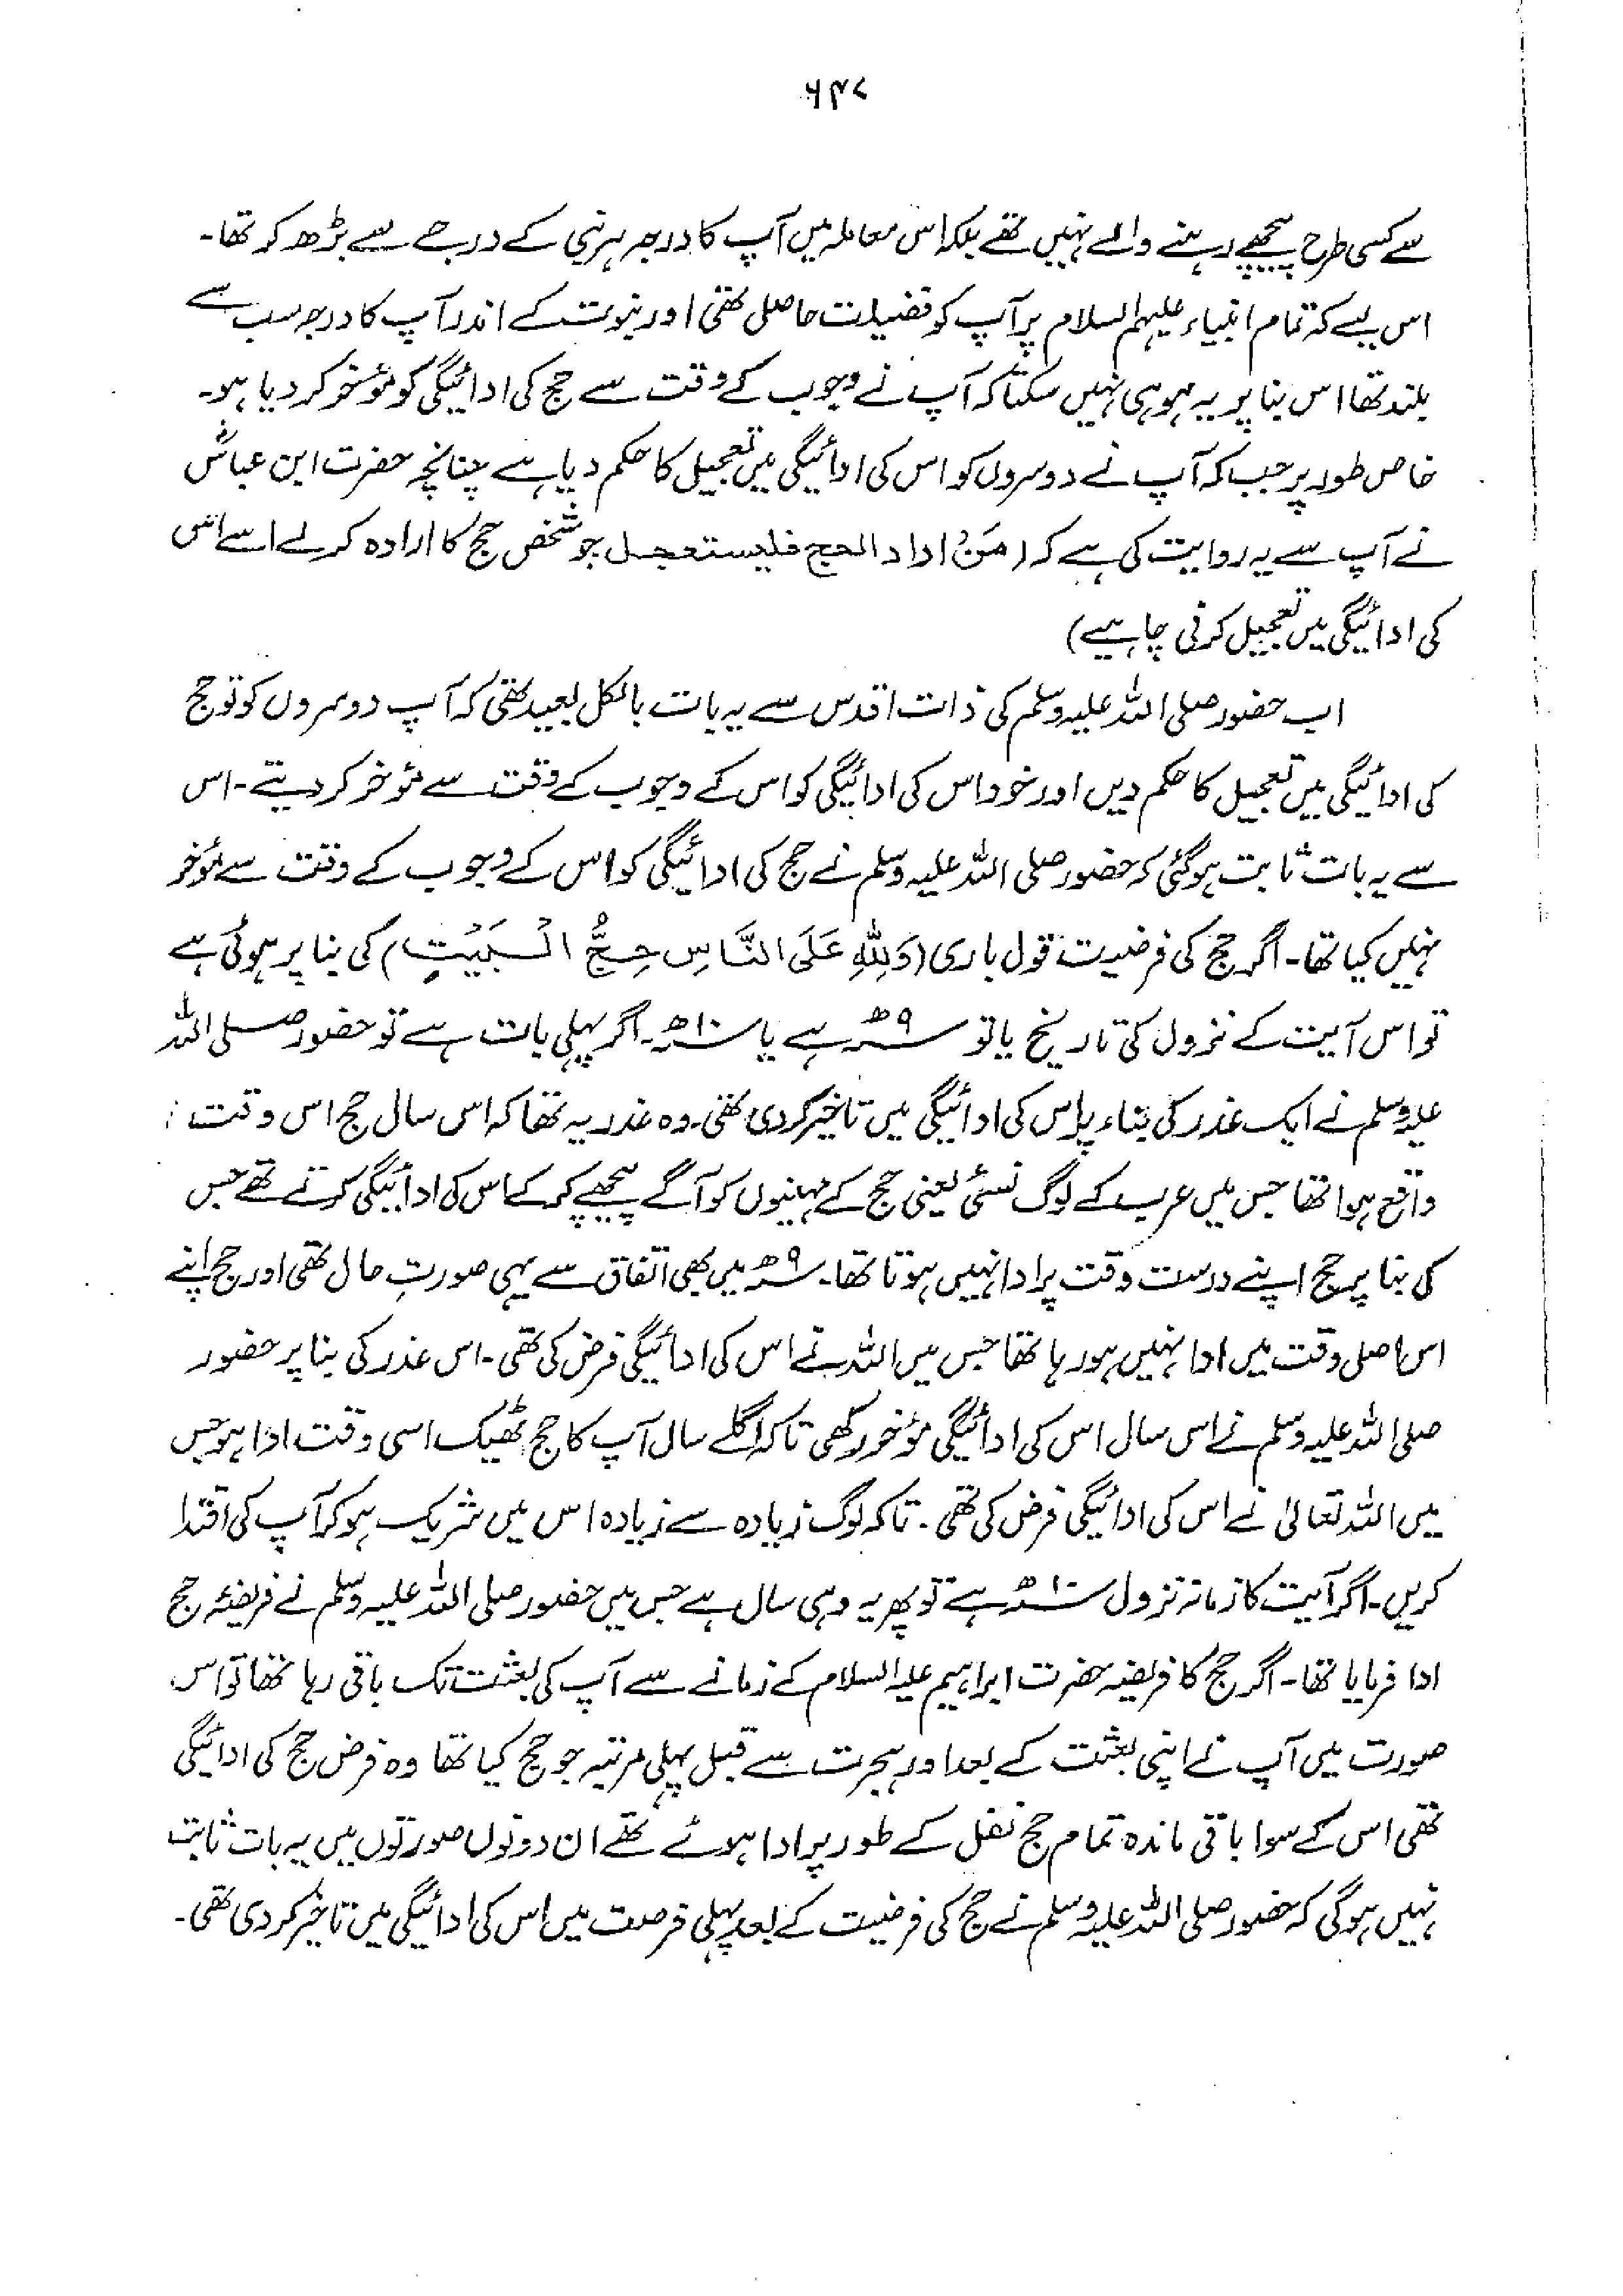 ۶۴۷
سے کسی طرح پیچھے رہنے والے نہیں تھے بلکہ اس معاملہ میں آپ کا درجہ ہر نبی کے درجے سے بڑھ کر تھا۔
اس لیے کہ تمام انبیاء علیہم السلام پر آپ کو فضیلت حاصل تھی اور نبوت کے اندر آپ کا درجہ سب سے
بلند تھا اس بنا پر یہ ہو ہی نہیں سکتا کہ آپ نے وجوب کے وقت سے حج کی ادائیگی کو مؤخر کر دیا ہو۔
خاص طور پر جب کہ آپ نے دوسروں کو اس کی ادائیگی میں تعجیل کا حکم دیا ہے چنانچہ حضرت ابن عباسؓ
نے آپ سے یہ روایت کی ہے کہ (مَنْ اراد الحج فلیستعجل جو شخص حج کا ارادہ کرلے اسے اس
کی ادائیگی میں تعجیل کرنی چاہیے)
اب حضور صلی اللہ علیہ وسلم کی ذات اقدس سے یہ بات بالکل بعید تھی کہ آپ دوسروں کو تو حج
کی ادائیگی میں تعجیل کا حکم دیں اور خود اس کی ادائیگی کو اس کے وجوب کے وقت سے مؤخر کر دیتے۔ اس
سے یہ بات ثابت ہوگئی کہ حضور صلی اللہ علیہ وسلم نے حج کی ادائیگی کو اس کے وجوب کے وقت سے مؤخر
نہیں کیا تھا۔ اگر حج کی فرضیت قول باری (وَلِلّٰہِ عَلَی النَّاسِ حِجُّ الْبَیْتِ) کی بنا پر ہوئی ہے
تو اس آیت کے نزول کی تاریخ یا تو ۹ھ ہے یا ۱۰ھ۔ اگر پہلی بات ہے تو حضور صلی اللہ
علیہ وسلم نے ایک عذر کی بناء پر اس کی ادائیگی میں تاخیر کر دی تھی۔ وہ عذر یہ تھا کہ اس سال حج اس وقت
واقع ہوا تھا جس میں عرب کے لوگ نسئی یعنی حج کے مہینوں کو آگے پیچھے کر کے اس کی ادائیگی کرتے تھے جس
کی بنا پر حج اپنے درست وقت پر ادا نہیں ہوتا تھا۔ ۹ھ میں بھی اتفاق سے یہی صورتِ حال تھی اور حج اپنے
اس اصلی وقت میں ادا نہیں ہو رہا تھا جس میں اللہ نے اس کی ادائیگی فرض کی تھی۔ اس عذر کی بنا پر حضور
صلی اللہ علیہ وسلم نے اس سال اس کی ادائیگی مؤخر رکھی تاکہ اگلے سال آپ کا حج ٹھیک اسی وقت ادا ہو جس
میں اللہ تعالیٰ نے اس کی ادائیگی فرض کی تھی۔ تاکہ لوگ زیادہ سے زیادہ اس میں شریک ہو کر آپ کی اقتدا
کریں۔ اگر آیت کا زمانہ نزول ۱۰ھ ہے تو پھر یہ وہی سال ہے جس میں حضور صلی اللہ علیہ وسلم نے فریضۂ حج
ادا فرمایا تھا۔ اگر حج کا فریضہ حضرت ابراہیم علیہ السلام کے زمانے سے آپ کی بعثت تک باقی رہا تھا تو اس
صورت میں آپ نے اپنی بعثت کے بعد اور ہجرت سے قبل پہلی مرتبہ جو حج کیا تھا وہ فرض حج کی ادائیگی
تھی اس کے سوا باقی ماندہ تمام حج نفل کے طور پر ادا ہوئے تھے ان دونوں صورتوں میں یہ بات ثابت
نہیں ہوگی کہ حضور صلی اللہ علیہ وسلم نے حج کی فرضیت کے بعد پہلی فرصت میں اس کی ادائیگی میں تاخیر کر دی تھی۔